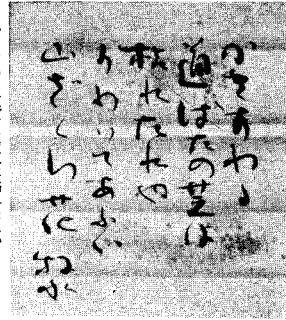 かきすわる
道ばたの芝は
枯れたれや
すわりてあふぐ
山ざくら花 牧水